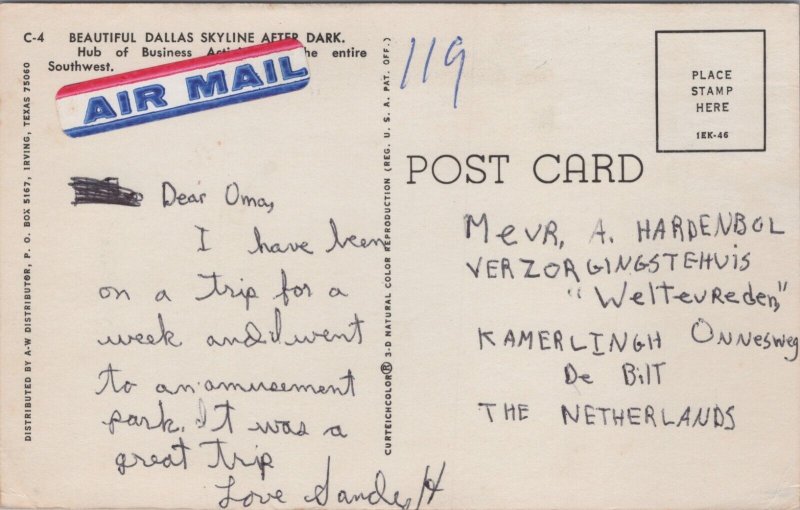 C-4 BEAUTIFUL DALLAS SKYLINE AFTER DARK.
Hub of Business he entire
Southwest.
AIR MAIL
DISTRIBUTED BY A-W DISTRIBUTOR, P. O. BOX 5167, IRVING, TEXAS 75060
Dear Oma,
I have been
on a trip for a
week and I went
to an amusement
park. It was a
great trip
Love Sandy H
CURTEICHCOLOR® 3-D NATURAL COLOR REPRODUCTION (REG. U. S. A. PAT. OFF.)
119
PLACE
STAMP
HERE
1EK-46
POST CARD
MEVR, A. HARDENBOL
VERZORGINGSTEHUIS
"Weltevreden"
KAMERLINGH ONNESWEG
De Bilt
THE NETHERLANDS